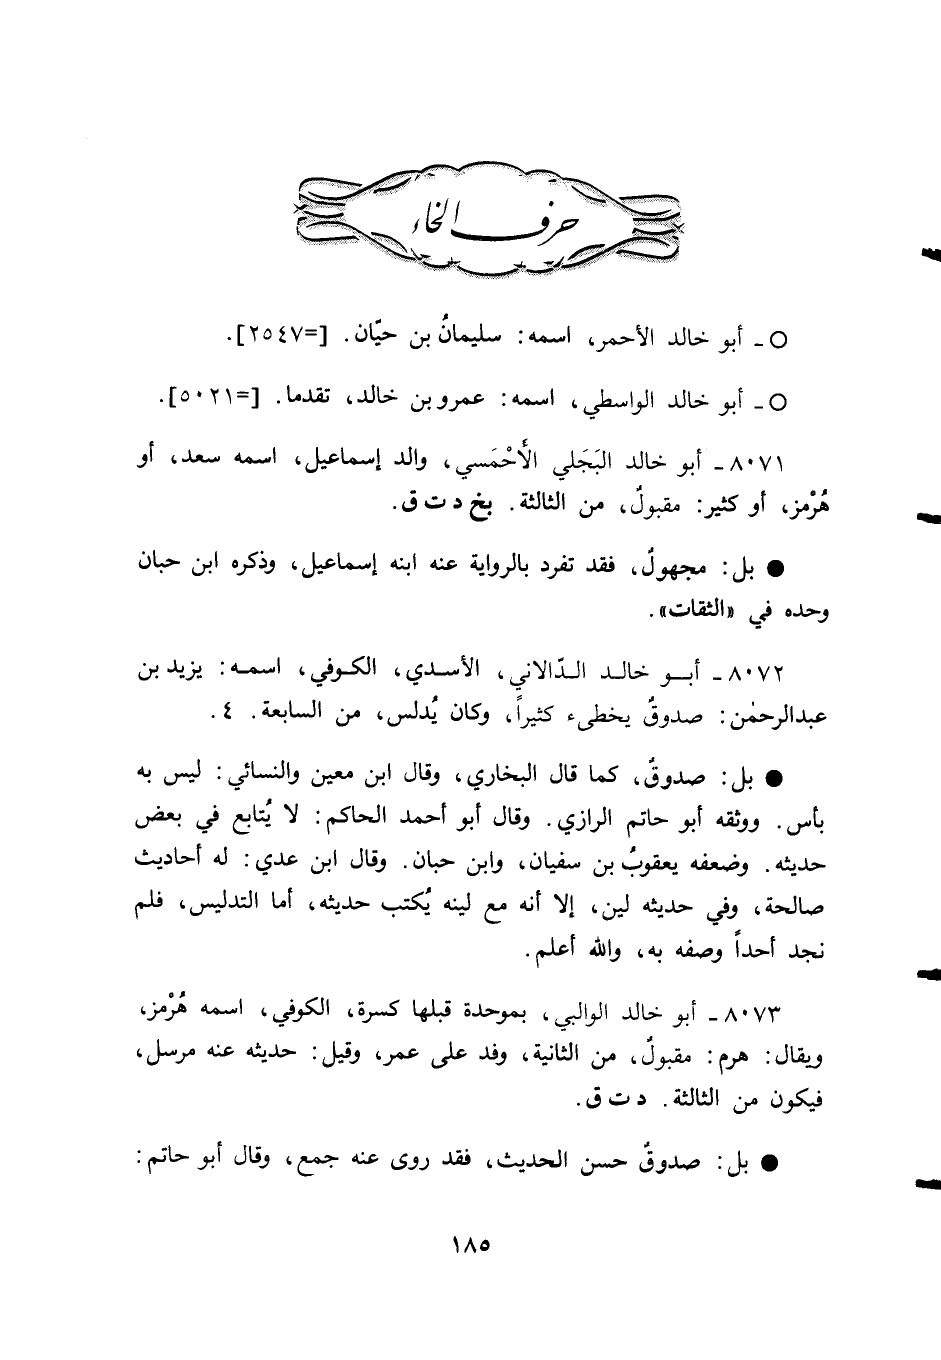 حرف الخاء
○ ـ أبو خالد الأحمر، اسمه: سليمانُ بن حيّان. [=٢٥٤٧].
○ ـ أبو خالد الواسطي، اسمه: عمرو بن خالد، تقدما. [=٥٠٢١].
٨٠٧١ ـ أبو خالد البَجَلي الأَحْمَسي، والد إسماعيل، اسمه سعد، أو
هُرْمز، أو كثير: مقبولٌ، من الثالثة. بخ د ت ق.
● بل: مجهولٌ، فقد تفرد بالرواية عنه ابنه إسماعيل، وذكره ابن حبان
وحده في «الثقات».
٨٠٧٢ ـ أبو خالد الدّالاني، الأسدي، الكوفي، اسمه: يزيد بن
عبدالرحمٰن: صدوقٌ يخطىء كثيراً، وكان يُدلس، من السابعة. ٤.
● بل: صدوقٌ، كما قال البخاري، وقال ابن معين والنسائي: ليس به
بأس. ووثقه أبو حاتم الرازي. وقال أبو أحمد الحاكم: لا يُتابع في بعض
حديثه. وضعفه يعقوبُ بن سفيان، وابن حبان. وقال ابن عدي: له أحاديث
صالحة، وفي حديثه لين، إلا أنه مع لينه يُكتب حديثه، أما التدليس، فلم
نجد أحداً وصفه به، والله أعلم.
٨٠٧٣ ـ أبو خالد الوالبي، بموحدة قبلها كسرة، الكوفي، اسمه هُرْمز،
ويقال: هرم: مقبولٌ، من الثانية، وفد على عمر، وقيل: حديثه عنه مرسل،
فيكون من الثالثة. د ت ق.
● بل: صدوقٌ حسن الحديث، فقد روى عنه جمع، وقال أبو حاتم:
١٨٥